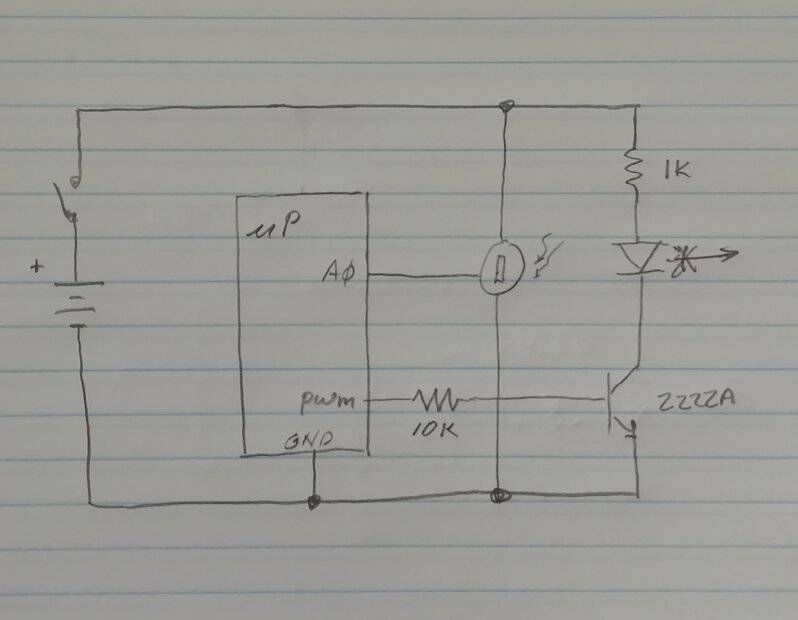 1K
μP
+
AØ
pwm
10K
2222A
GND